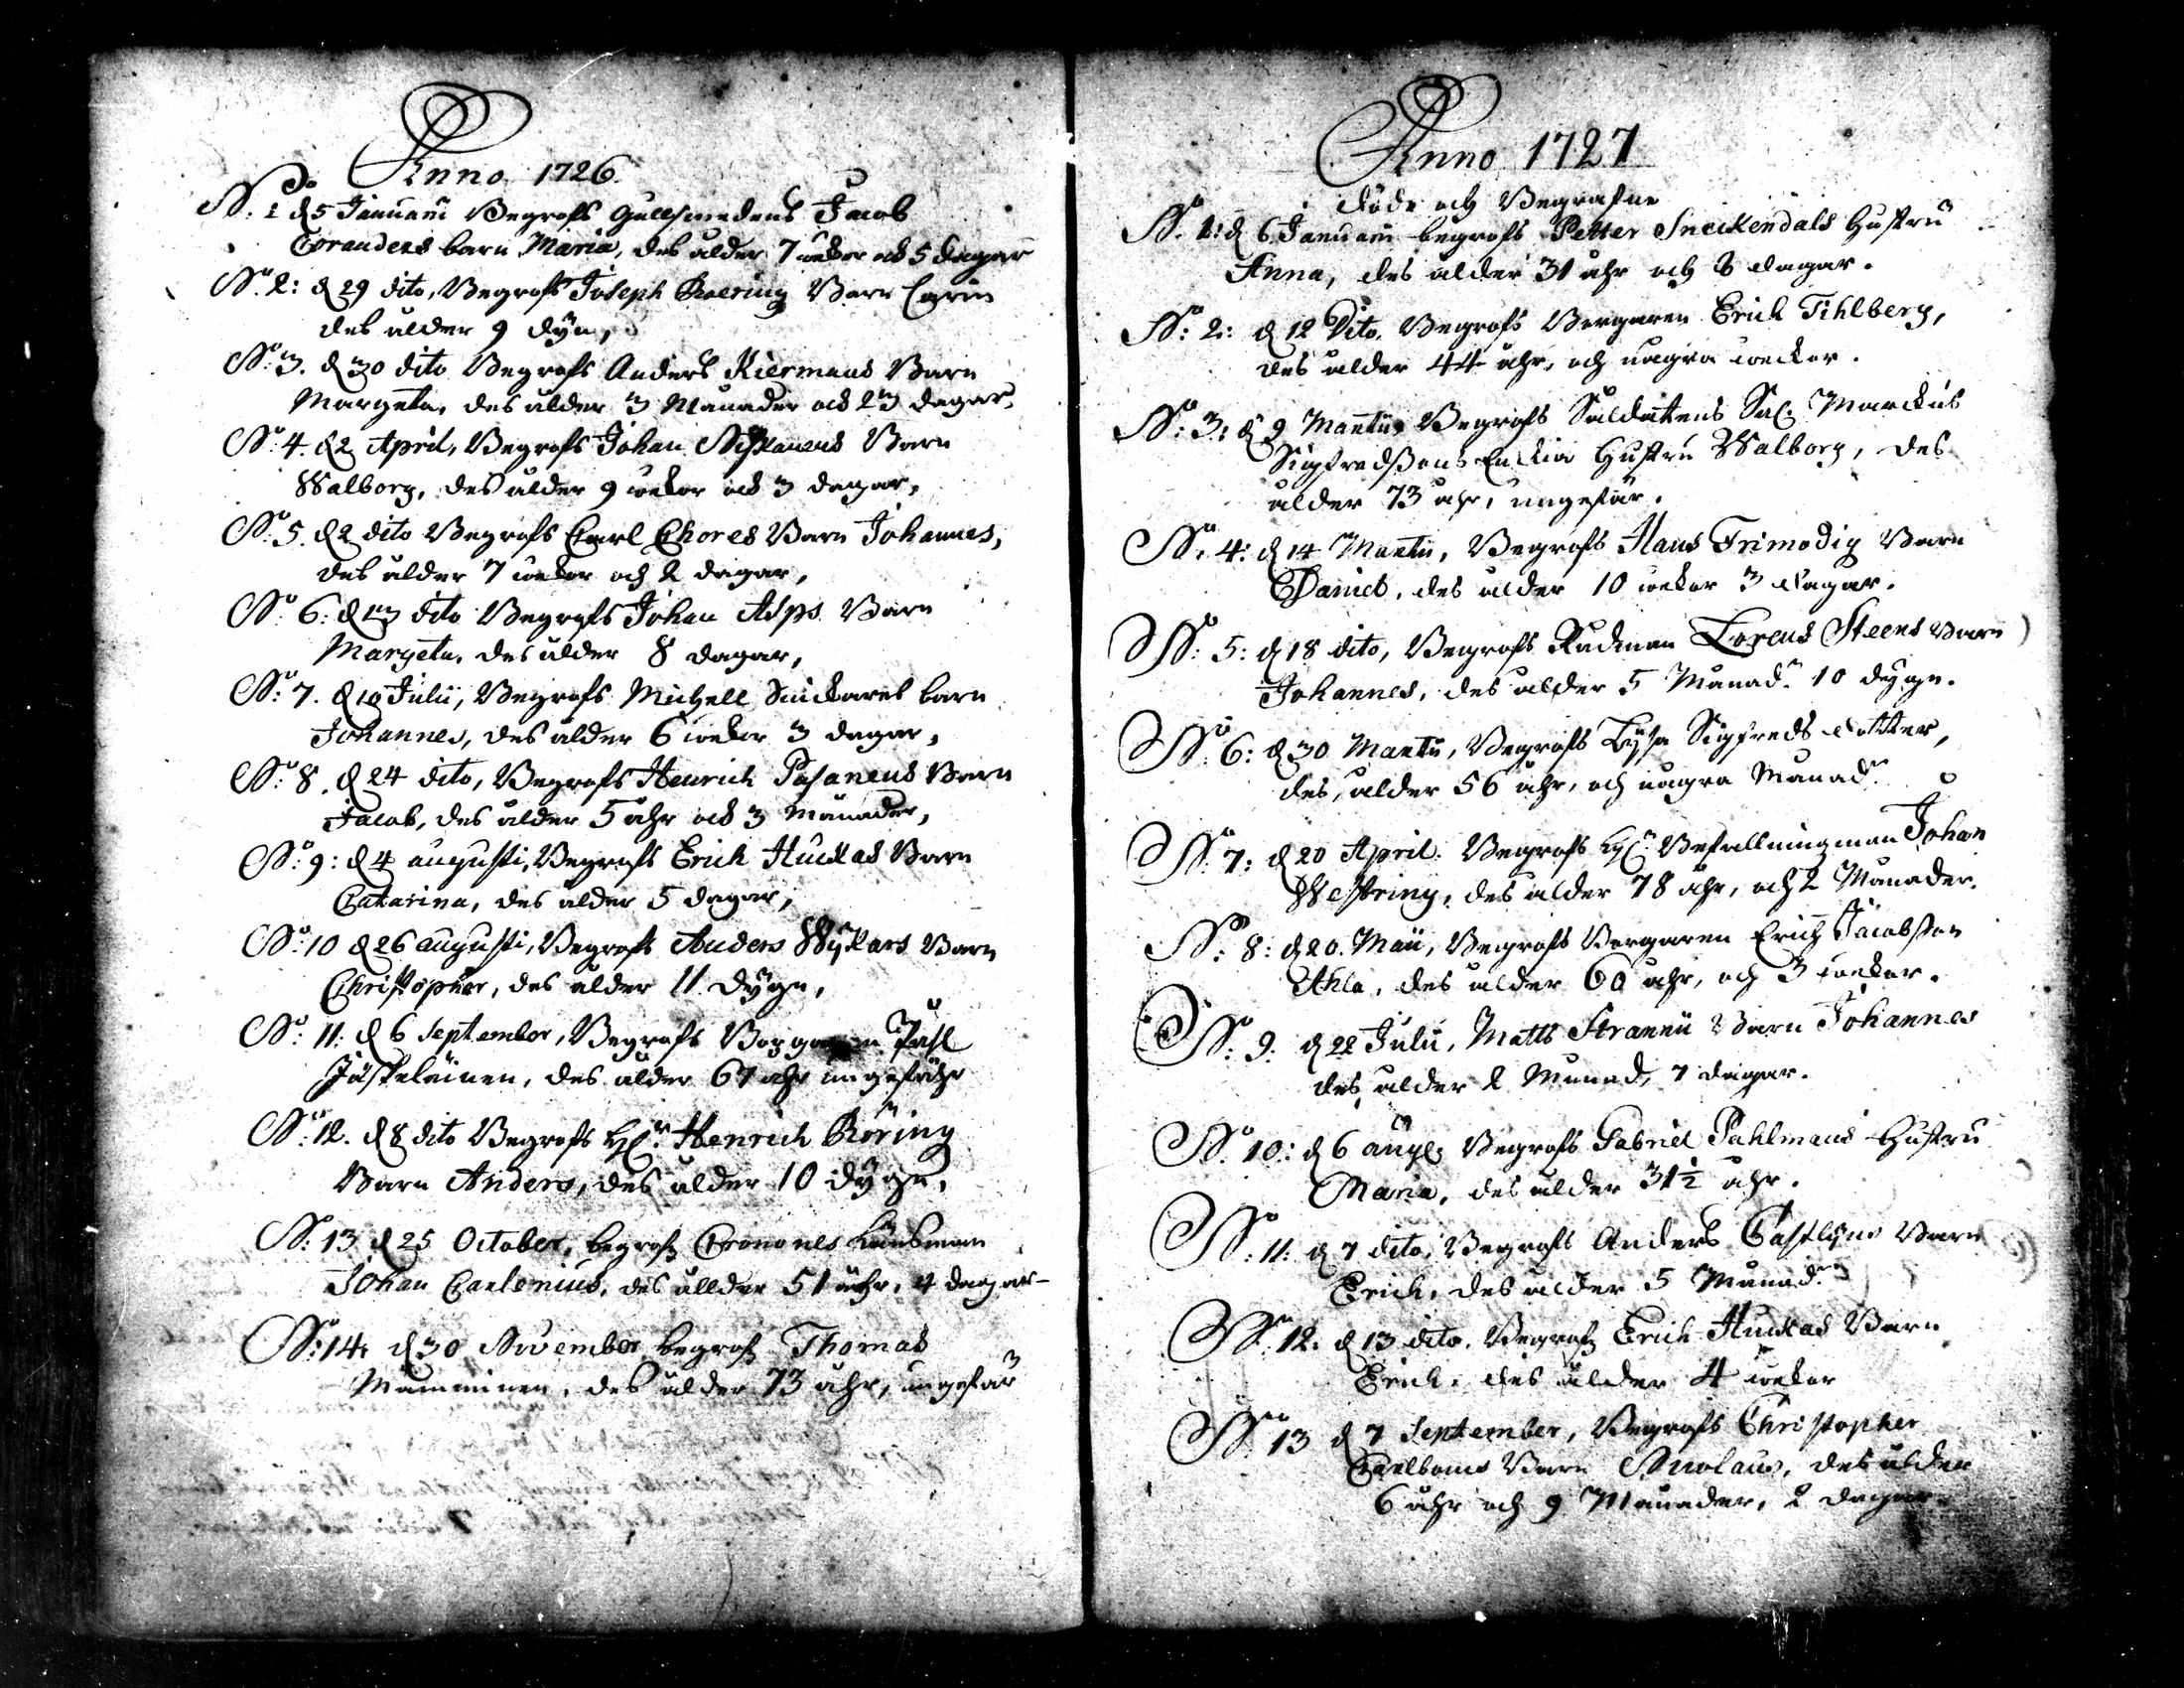 Anno 1726.
No. 1 d 5 Januarii Begrofs Gullsmedens Jacob
barn Maria, des ålder 7 wekor och 5 dagar
No. 2: d 29 dito, Begrofs Joseph Roering Barn Carin
des ålder 9 dyn,
No. 3. d 30 dito Begrofs Anders Kiermans Barn
Margeta, des ålder 3 Månader och 23 dagar,
No. 4. d 2 April, Begrofs Johan Barn
Walborg, des ålder 9 wekor och 3 dagar,
No. 5. d 2 dito Begrofs Carl Chores Barn Johannes,
des ålder 7 wekor och 2 dagar,
No. 6: d 13 dito Begrofs Johan Asps Barn
Margeta, des ålder 8 dagar,
No. 7. d 10 Julii, Begrofs Michell Snickares barn
Johannes, des ålder 6 wekor 3 dagar,
No. 8. d 24 dito, Begrofs Henrich Pasanens Barn
Jacob, des ålder 5 åhr och 3 månader,
No. 9: d 4 augusti, Begrofs Erich Huckas Barn
Catarina, des ålder 5 dagar,
No. 10 d 26 augusti, Begrofs Anders Wykars Barn
Christopher, des ålder 11 dygn,
No. 11: d 6 September, Begrofs Borgaren Påhl
Jäskeläinen, des ålder 67 åhr ungefähr
No. 12. d 8 dito Begrofs Henrich Röring
Barn Anders, des ålder 10 dygn,
No. 13 d 25 October, begrofs Cronones Länsman
Johan Carlenius, des ållder 51 åhr, 4 dagar
No. 14: d 30 November begrofs Thomas
Mamminen, des ålder 73 åhr, ungefär
Anno 1727
döde och Begrafne
No. 1: d 6 Januarii begrofs Petter Sneckendals Hustru
Anna, des ålder 31 åhr och 8 dagar.
No. 2: d 12 Dito. Begrofs Borgaren Erich Tihlberg,
des ålder 44 åhr, och några weckor.
No. 3: d 9 Martii Begrofs Saldatens Sal. Marckus
Sigfredssons Enckia Hustru Walborg, des
ålder 73 åhr, ungefär.
No. 4: d 14 Martii, Begrofs Hans Frimodig Barn
Daniel, des ålder 10 wekor 3 dagar.
No. 5: d 18 dito, Begrofs Rådman Lorens Steens Barn
Johannes, des ålder 5 Månadr 10 dygn.
No. 6: d 30 Martii, Begrofs Lysa Sigfreds dotter,
des, ålder 56 åhr, och några Månadr
No. 7: d 20 April. Begrofs Befallningman Johan
Westring, des ålder 78 åhr, och 2 Månader.
No. 8: d 20. Maii, Begrofs Borgaren Erich Jacobsson
des ålder 60 åhr, och 3 wekor.
No. 9: d 22 Julii, Matts Strannii Barn Johannes
des, ålder 2 Månad, 7 dagar.
No. 10: d 6 aug. Begrofs Gabriel Pahlmans Hustru
Maria, des ålder 31½ åhr.
No. 11: d 7 dito, Begrofs Anders Barn
Erich, des ålder 5 Månadr
No. 12. d 13 dito. Begrofs Erich Huckas Barn
Erich, des ålder 4 wekor
No. 13 d 7 September, Begrofs Christopher
Carlboms Barn Nicolaus, des ålder
6 åhr och 9 Månader, 2 dagar.